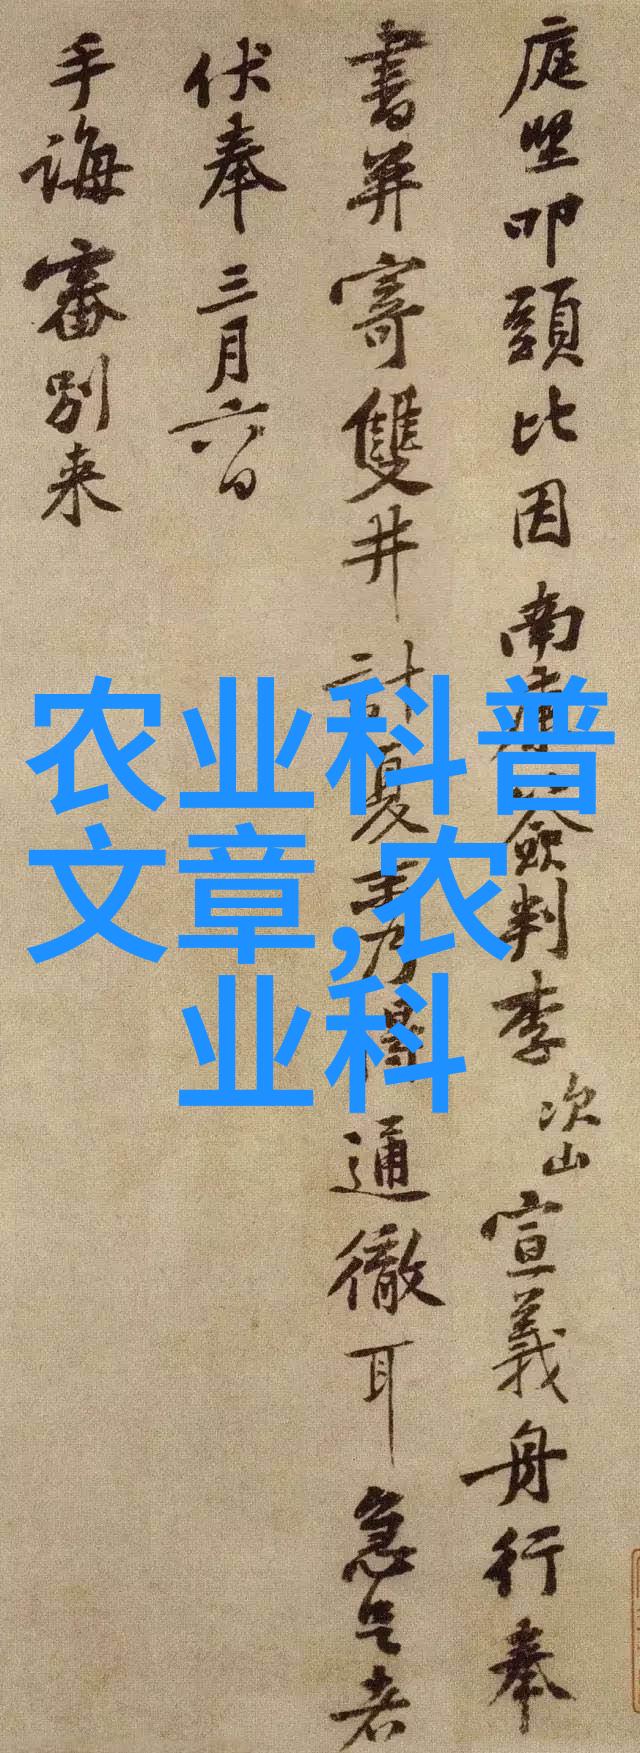 庭堅叩頭比因南康簽判李
次山宣義舟行奉
書并寄雙井計夏
得通徹耳急足者
伏奉三月六日
手誨審別来
农业科普
文章,农
业科